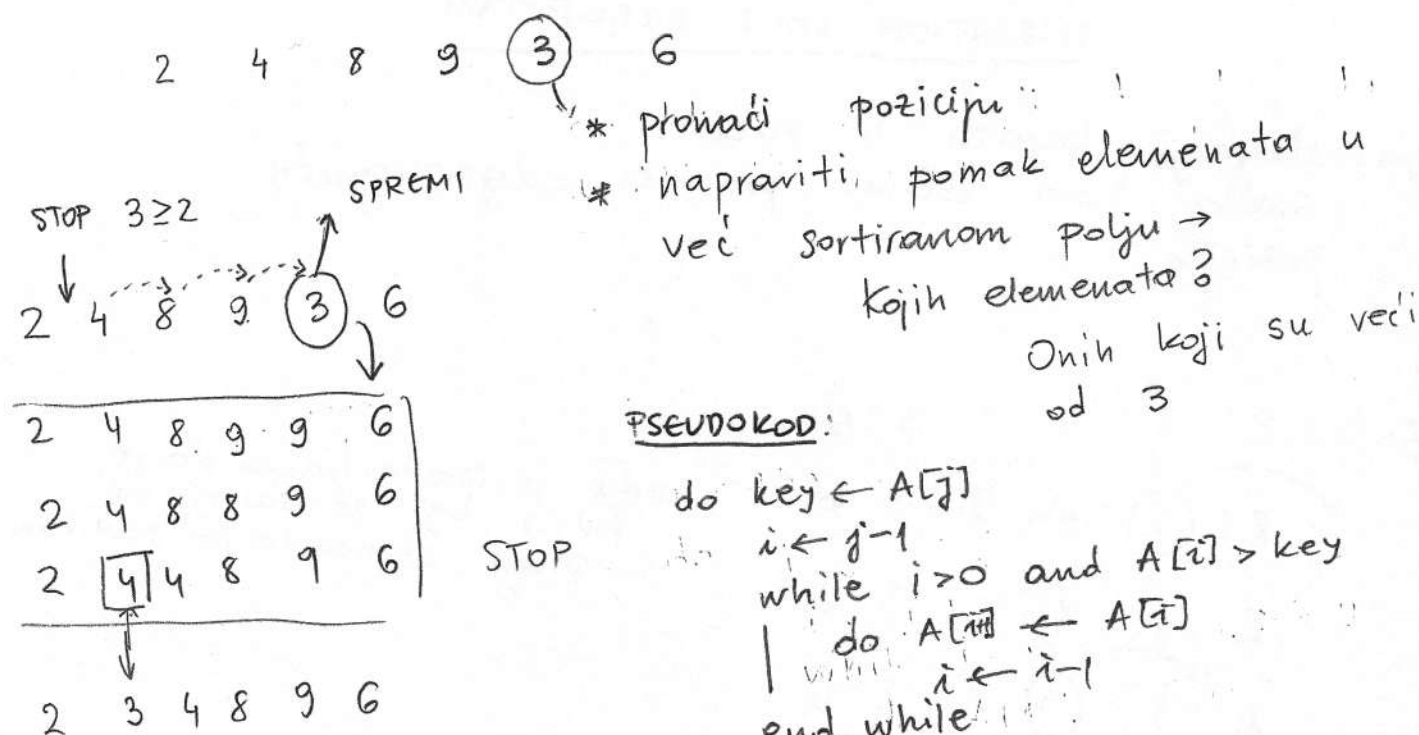 2 4 8 9 3 6
* pronaći poziciju
* napraviti pomak elemenata u
već sortiranom polju →
kojih elemenata?
Onih koji su veći
od 3
STOP 3≥2
SPREMI
2 4 8 9 3 6
2 4 8 9 9 6
2 4 8 8 9 6
2 4 4 8 9 6
STOP
2 3 4 8 9 6
PSEUDOKOD:
do key ← A[j]
i ← j-1
while i>0 and A[i] > key
do A[i+1] ← A[i]
i ← i-1
end while